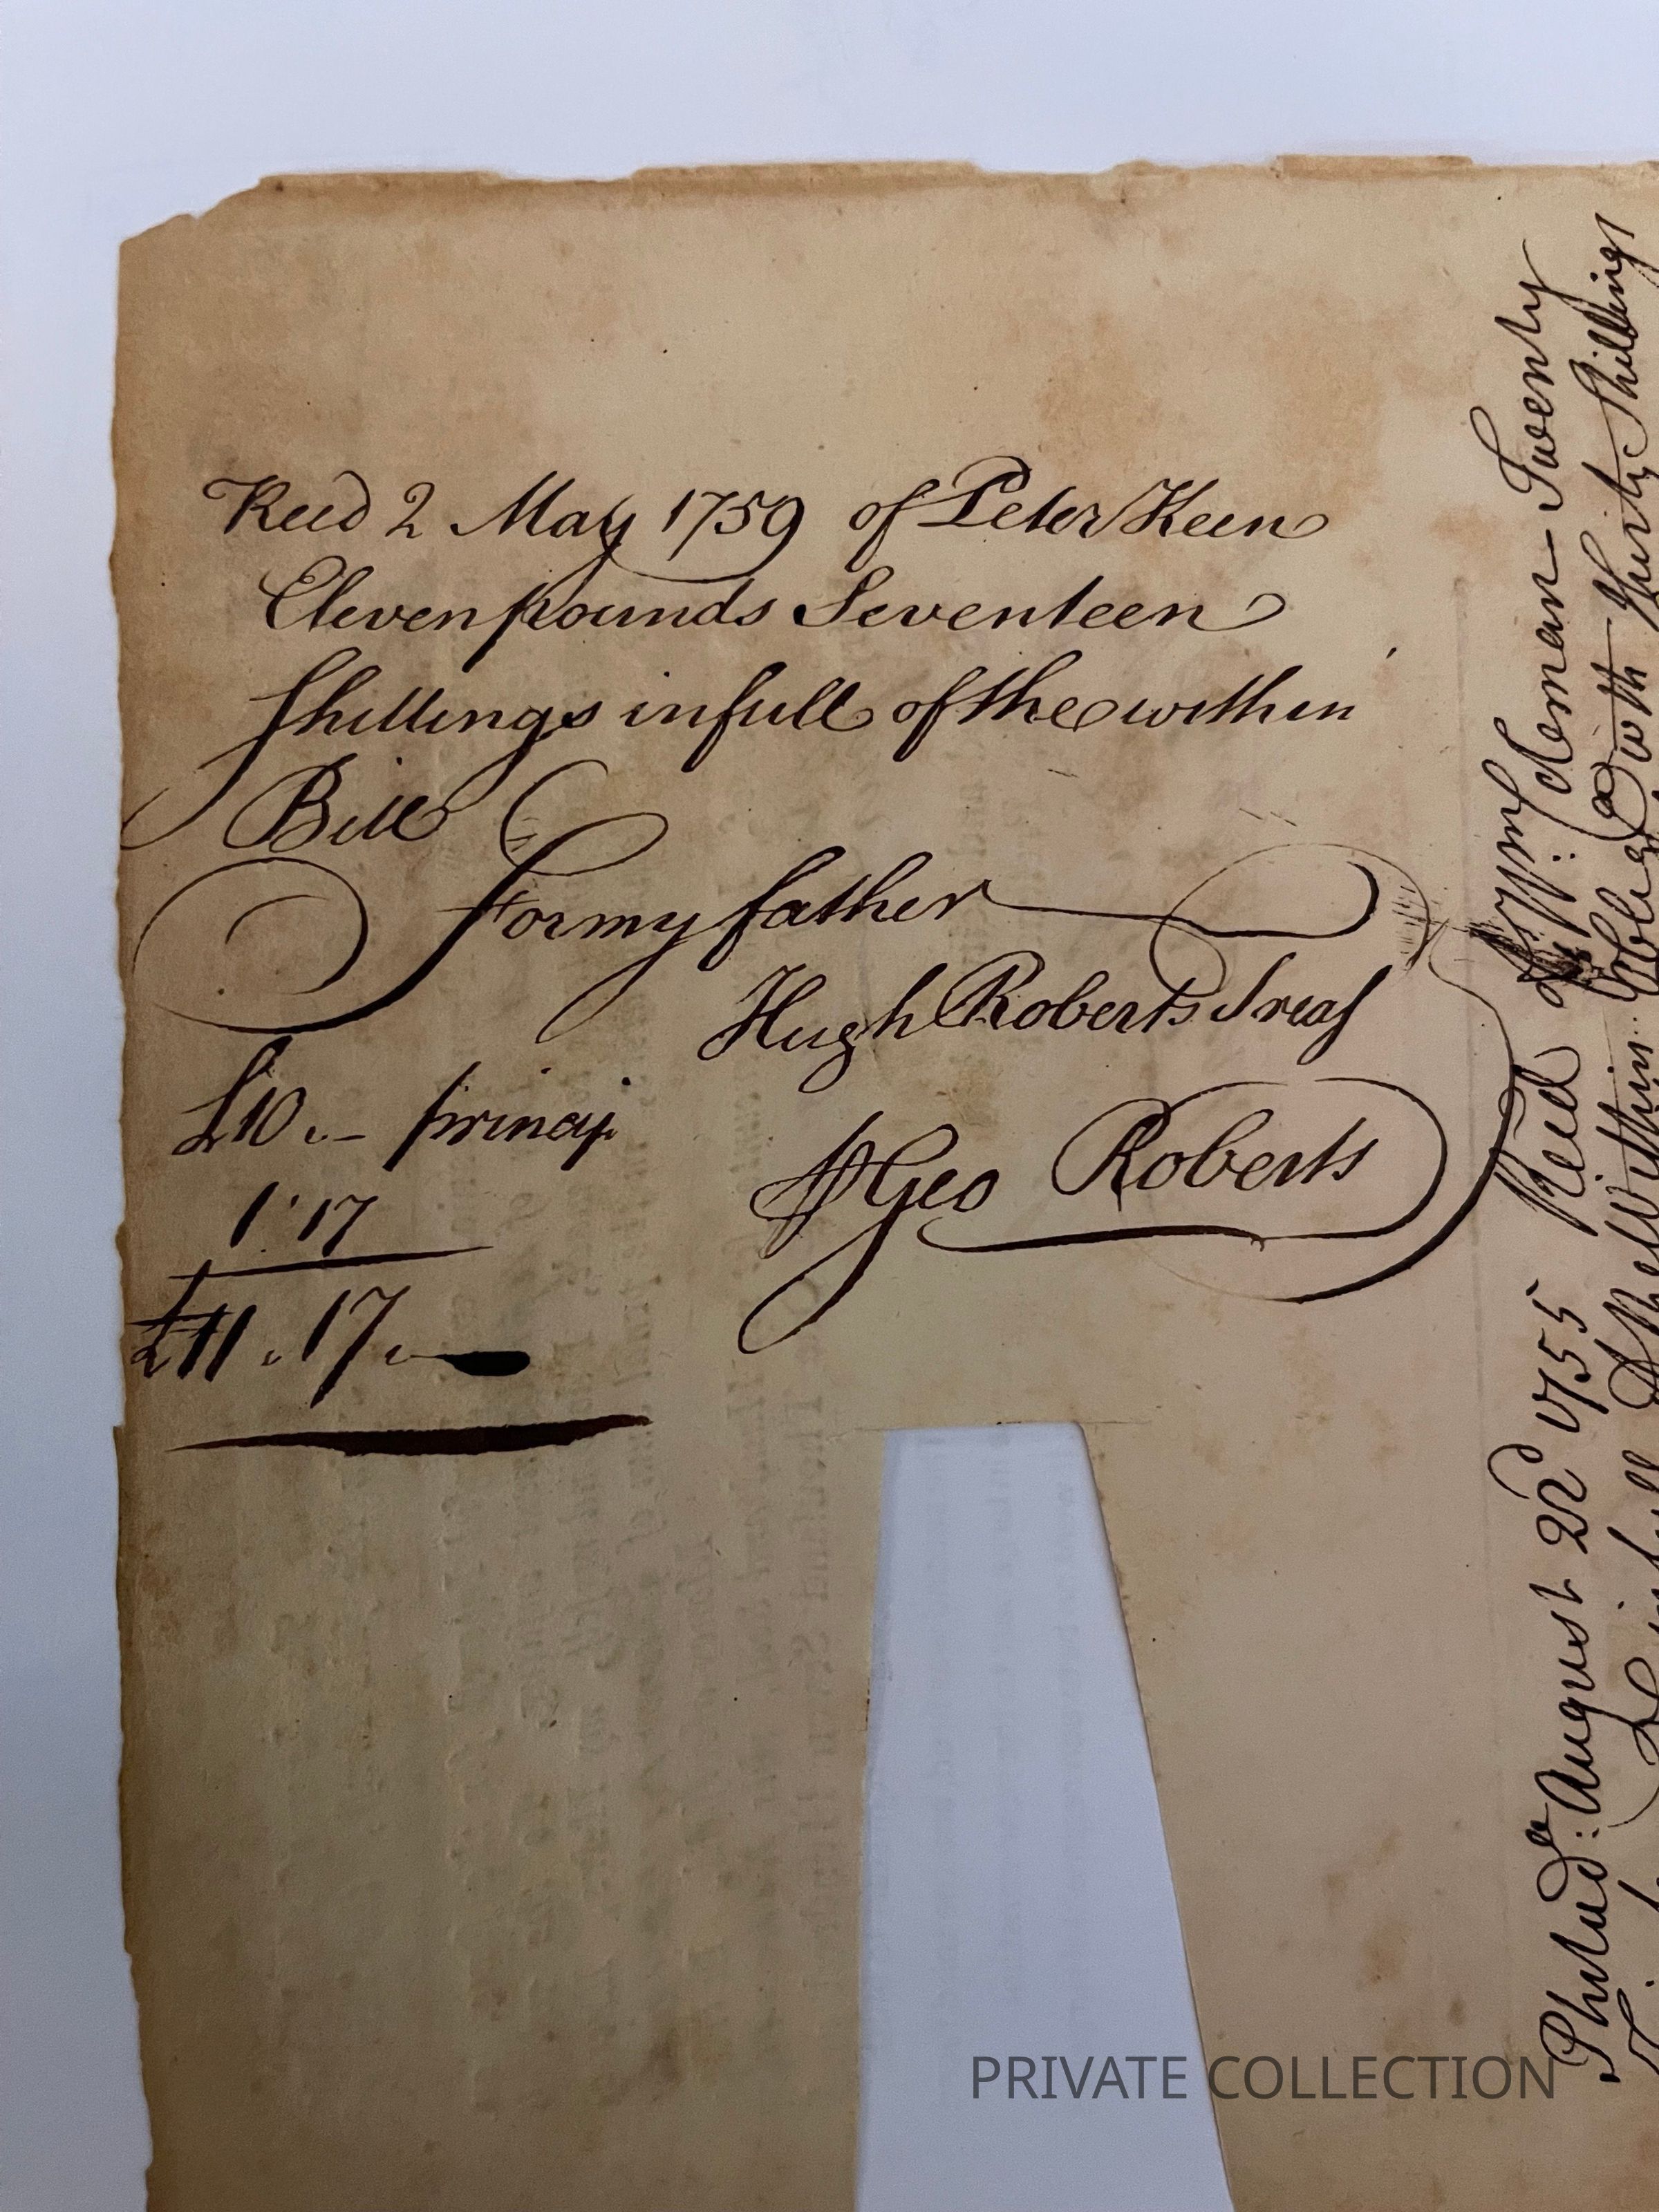 Recd 2 May 1759 of Peter Keen
Eleven pounds Seventeen
shillings in full of the within
Bill
For my father
Hugh Roberts Treas
Geo Roberts
£10 . – princip
1 . 17
£11 . 17 . –
Philad.ᵃ August 22ᵈ 1755 Recd of Wm: Coleman Twenty
with thirty Shillings
PRIVATE COLLECTION